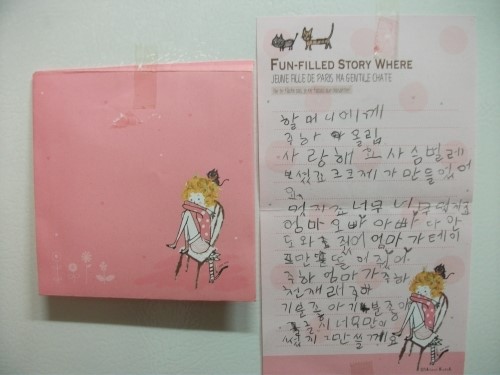 FUN-FILLED STORY WHERE
JEUNE FILLE DE PARIS MA GENTILE CHATE
할머니에게
주하 올림
사랑해요 사슴벌레
보셨죠 르르제가 만들었어
요
멋지죠 너무
엄마 오빠 아빠 다 안
도와 줬어 엄마가 테이
프만 뜯어줬어
주하 엄마가 주하
천재래 주하
기분 좋아 기분 좋아
너무 많이
썼지 그만 쓸게요